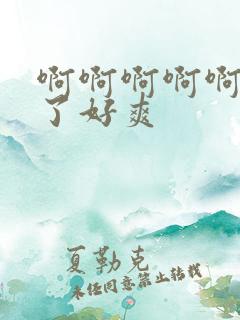 啊啊啊啊啊
了好爽
夏勒克
未经同意禁止转载